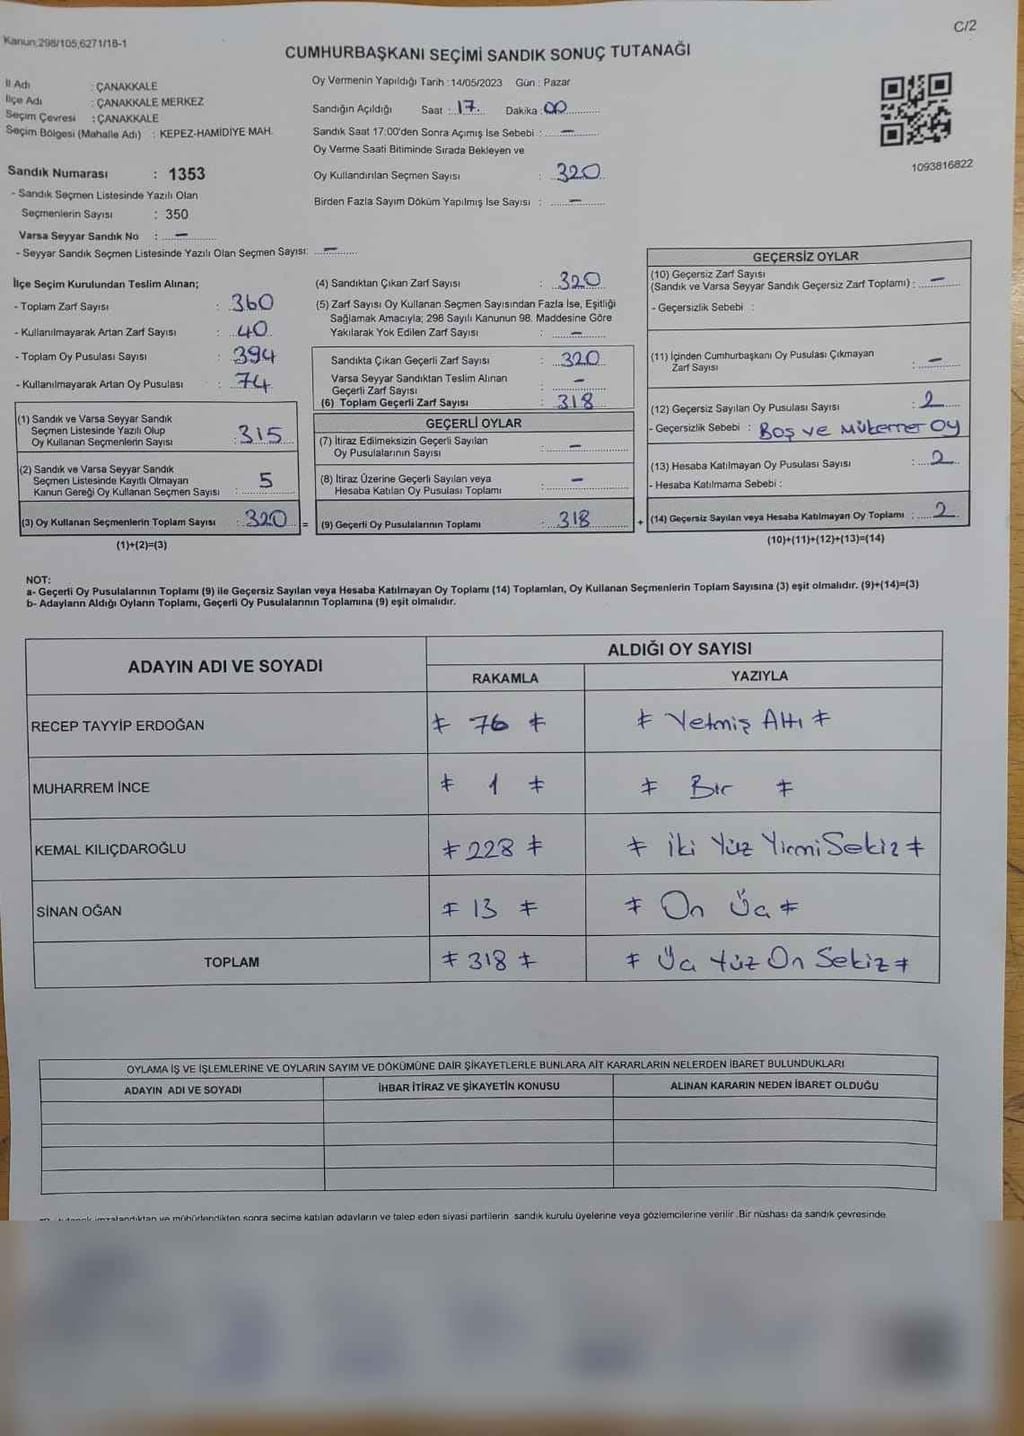 Kanun:298/105,6271/18-1
C/2
CUMHURBAŞKANI SEÇİMİ SANDIK SONUÇ TUTANAĞI
İl Adı : ÇANAKKALE
İlçe Adı : ÇANAKKALE MERKEZ
Seçim Çevresi : ÇANAKKALE
Seçim Bölgesi (Mahalle Adı) : KEPEZ-HAMİDİYE MAH.
Sandık Numarası : 1353
- Sandık Seçmen Listesinde Yazılı Olan
Seçmenlerin Sayısı : 350
Varsa Seyyar Sandık No : –
- Seyyar Sandık Seçmen Listesinde Yazılı Olan Seçmen Sayısı: –
Oy Vermenin Yapıldığı Tarih :14/05/2023 Gün : Pazar
Sandığın Açıldığı Saat : 17 Dakika : 00
Sandık Saat 17:00'den Sonra Açımış İse Sebebi : –
Oy Verme Saati Bitiminde Sırada Bekleyen ve
Oy Kullandırılan Seçmen Sayısı : 320
Birden Fazla Sayım Döküm Yapılmış İse Sayısı : –
1093816822
İlçe Seçim Kurulundan Teslim Alınan;
- Toplam Zarf Sayısı : 360
- Kullanılmayarak Artan Zarf Sayısı : 40
- Toplam Oy Pusulası Sayısı : 394
- Kullanılmayarak Artan Oy Pusulası : 74
(1) Sandık ve Varsa Seyyar Sandık
Seçmen Listesinde Yazılı Olup
Oy Kullanan Seçmenlerin Sayısı : 315
(2) Sandık ve Varsa Seyyar Sandık
Seçmen Listesinde Kayıtlı Olmayan
Kanun Gereği Oy Kullanan Seçmen Sayısı : 5
(3) Oy Kullanan Seçmenlerin Toplam Sayısı : 320 =
(1)+(2)=(3)
(4) Sandıktan Çıkan Zarf Sayısı : 320
(5) Zarf Sayısı Oy Kullanan Seçmen Sayısından Fazla İse, Eşitliği
Sağlamak Amacıyla; 298 Sayılı Kanunun 98. Maddesine Göre
Yakılarak Yok Edilen Zarf Sayısı : –
Sandıkta Çıkan Geçerli Zarf Sayısı : 320
Varsa Seyyar Sandıktan Teslim Alınan
Geçerli Zarf Sayısı : –
(6) Toplam Geçerli Zarf Sayısı : 318
GEÇERLİ OYLAR
(7) İtiraz Edilmeksizin Geçerli Sayılan
Oy Pusulalarının Sayısı : –
(8) İtiraz Üzerine Geçerli Sayılan veya
Hesaba Katılan Oy Pusulası Toplamı : –
(9) Geçerli Oy Pusulalarının Toplamı : 318 +
GEÇERSİZ OYLAR
(10) Geçersiz Zarf Sayısı
(Sandık ve Varsa Seyyar Sandık Geçersiz Zarf Toplamı) : –
- Geçersizlik Sebebi :
(11) İçinden Cumhurbaşkanı Oy Pusulası Çıkmayan
Zarf Sayısı : –
(12) Geçersiz Sayılan Oy Pusulası Sayısı : 2
- Geçersizlik Sebebi : Boş ve Mükerrer Oy
(13) Hesaba Katılmayan Oy Pusulası Sayısı : 2
- Hesaba Katılmama Sebebi :
(14) Geçersiz Sayılan veya Hesaba Katılmayan Oy Toplamı : 2
(10)+(11)+(12)+(13)=(14)
NOT:
a- Geçerli Oy Pusulalarının Toplamı (9) ile Geçersiz Sayılan veya Hesaba Katılmayan Oy Toplamı (14) Toplamları, Oy Kullanan Seçmenlerin Toplam Sayısına (3) eşit olmalıdır. (9)+(14)=(3)
b- Adayların Aldığı Oyların Toplamı, Geçerli Oy Pusulalarının Toplamına (9) eşit olmalıdır.
ADAYIN ADI VE SOYADI
ALDIĞI OY SAYISI
RAKAMLA YAZIYLA
RECEP TAYYİP ERDOĞAN ‡ 76 ‡ ‡ Yetmiş Altı ‡
MUHARREM İNCE ‡ 1 ‡ ‡ Bir ‡
KEMAL KILIÇDAROĞLU ‡ 228 ‡ ‡ İki Yüz Yirmi Sekiz ‡
SİNAN OĞAN ‡ 13 ‡ ‡ On Üç ‡
TOPLAM ‡ 318 ‡ ‡ Üç Yüz On Sekiz ‡
OYLAMA İŞ VE İŞLEMLERİNE VE OYLARIN SAYIM VE DÖKÜMÜNE DAİR ŞİKAYETLERLE BUNLARA AİT KARARLARIN NELERDEN İBARET BULUNDUKLARI
ADAYIN ADI VE SOYADI İHBAR İTİRAZ VE ŞİKAYETİN KONUSU ALINAN KARARIN NEDEN İBARET OLDUĞU
imzalandıktan ve mühürlendikten sonra seçime katılan adayların ve talep eden siyasi partilerin sandık kurulu üyelerine veya gözlemcilerine verilir. Bir nüshası da sandık çevresinde